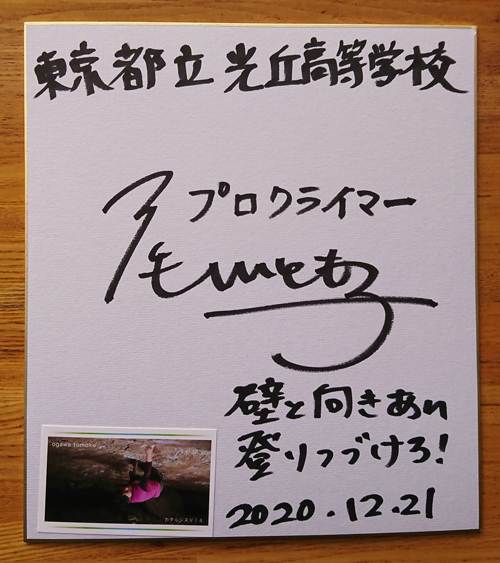 東京都立光丘高等学校
プロクライマー
壁と向きあい
登りつづけろ!
2020.12.21
ogawa tomoko
カタルシスV14